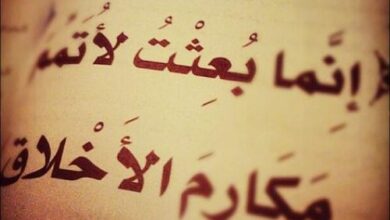 ﴿إِنَّما بُعِثْتُ لأُتَمِّمَ
مَكَارِمَ الأَخْلاق